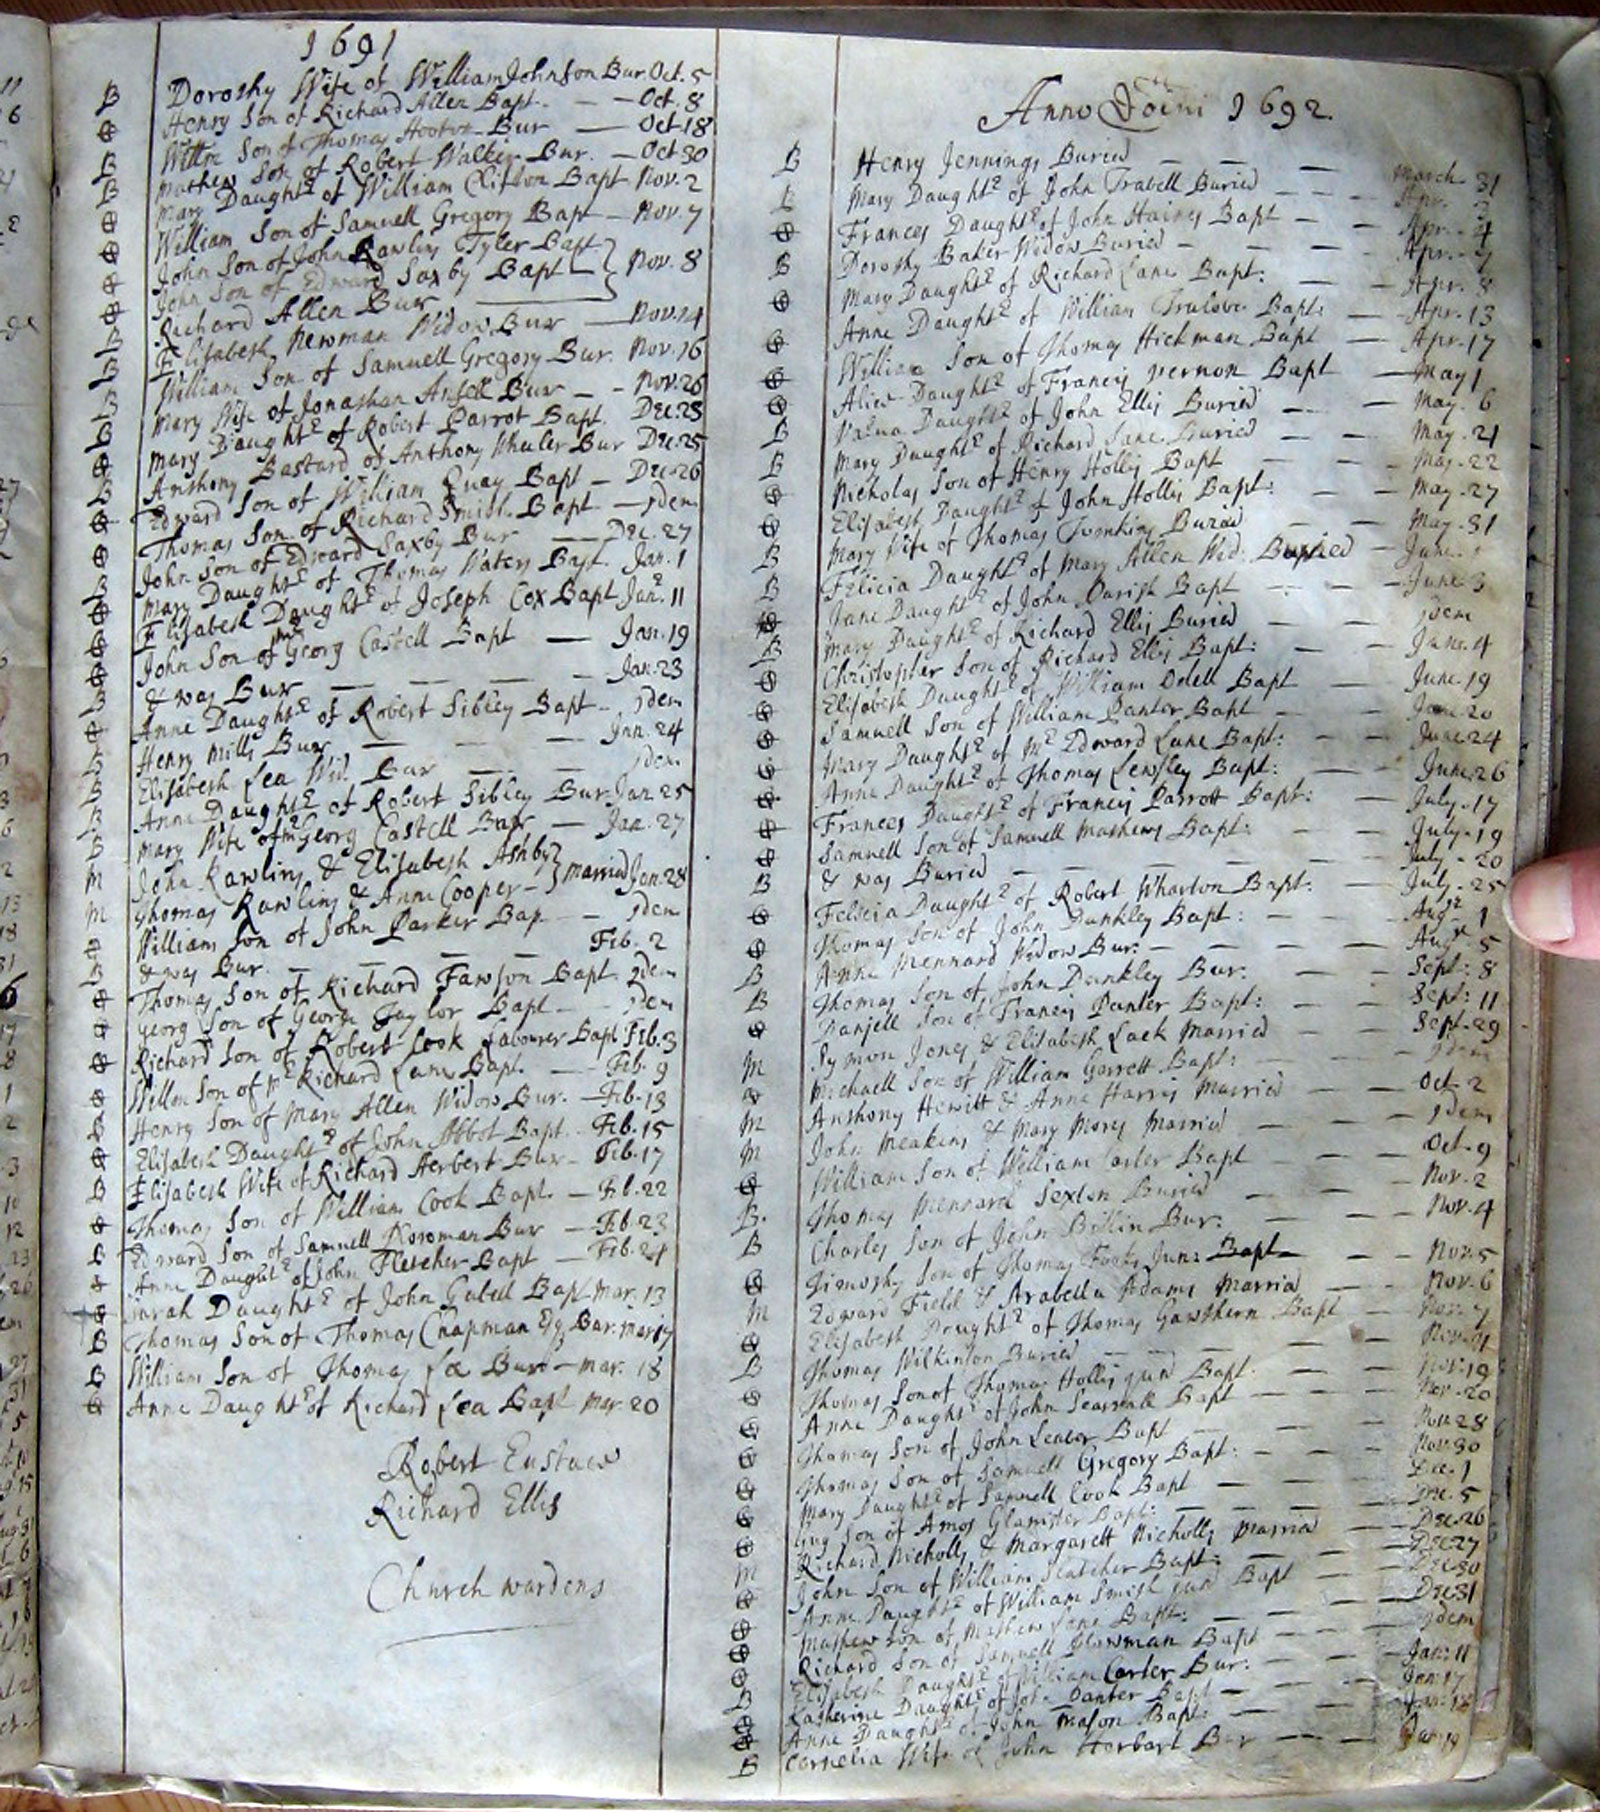 1691
B Dorothy Wife of William Johnson Bur. Oct. 5
Henry Son of Richard Allen Bapt. Oct. 8
B Willm Son of Thomas Bur Oct 18
B Mathew Son of Robert Walker Bur. Oct 30
Mary Daughtr of William Clifton Bapt Nov. 2
William Son of Samuell Gregory Bapt Nov. 7
John Son of John Rawlins Tyler Bapt
John Son of Edward Saxby Bapt Nov. 8
B Richard Allen Bur
B Elisabeth Newman Widow Bur Nov. 14
B William Son of Samuell Gregory Bur. Nov. 16
B Mary Wife of Jonathan Ansell Bur Nov. 26
Mary Daughtr of Robert Parrot Bapt. Dec. 23
B Anthony Bastard of Anthony Wheeler Bur Dec. 25
Edward Son of William Quay Bapt Dec. 26
Thomas Son of Richard Smith Bapt Jdem
B John Son of Edward Saxby Bur Dec. 27
Mary Daughtr of Thomas Waters Bapt. Jan. 1
Elisabeth Daughtr of Joseph Cox Bapt Jan. 11
John Son of mr Georg Castell Bapt Jan. 19
B & was Bur Jan. 23
Anne Daughtr of Robert Sibley Bapt Jdem
B Henry Mills Bur Jan. 24
B Elisabeth Lea Wid. Bur Jdem
B Anne Daughtr of Robert Sibley Bur Jan 25
B Mary Wife of mr Georg Castell Bur Jan. 27
M John Rawlins & Elisabeth Ashby
M Thomas Rawlins & Anne Cooper married Jan. 28
William Son of John Parker Bap Jdem
B & was Bur. Feb. 2
Thomas Son of Richard Fawson Bapt. Jdem
Georg Son of Georg Taylor Bapt Jdem
Richard Son of Robert Cook Labourer Bapt Feb. 3
Willm Son of Mr Richard Lane Bapt. Feb. 9
B Henry Son of Mary Allen Widow Bur. Feb. 13
Elisabeth Daughtr of John Abbot Bapt. Feb. 15
B Elisabeth Wife of Richard Herbert Bur Feb. 17
Thomas Son of William Cook Bapt. Feb. 22
B Edward Son of Samuell Bur Feb. 23
Anne Daughtr of John Fletcher Bapt Feb. 24
Sarah Daughtr of John Gabell Bapt Mar. 13
B Thomas Son of Thomas Chapman Esq. Bur. Mar 17
B William Son of Thomas Lea Bur Mar. 18
Anne Daughtr of Richard Lea Bapt Mar. 20
Robert Eustace
Richard Ellis
Church wardens
Anno 1692.
B Henry Jennings Buried March 31
Mary Daughtr of John Buried Apr. 3
Frances Daughtr of John Haines Bapt Apr. 4
B Dorothy Baker Widow Buried Apr.
Mary Daughtr of Richard Lane Bapt: Apr. 8
Anne Daughtr of William Trulove Bapt: Apr. 13
William Son of Thomas Hickman Bapt Apr. 17
Alice Daughtr of Francis Vernon Bapt May 1
Daughtr of John Ellis Buried May. 6
B Mary Daughtr of Richard Lane Buried May. 21
Nicholas Son of Henry Hollis Bapt May. 22
Elisabeth Daughtr of John Hollis Bapt: May. 27
B Mary Wife of Thomas Buried May. 31
B Felicia Daughtr of Mary Allen Wid: Buried June.
Jane Daughtr of John Parish Bapt June 3
B Mary Daughtr of Richard Ellis Buried Jdem
Christopher Son of Richard Ellis Bapt: June. 4
Elisabeth Daughtr of William Odell Bapt June. 19
Samuell Son of William Panter Bapt June 20
Mary Daughtr of Mr Edward Lane Bapt: June. 24
Anne Daughtr of Thomas Bapt: June. 26
Frances Daughtr of Francis Parrott Bapt: July. 17
Samuell Son of Samuell Mathews Bapt: July. 19
B & was Buried July. 20
Felicia Daughtr of Robert Wharton Bapt: July. 25
Thomas Son of John Dunkley Bapt: Augt. 1
B Anne Mennard Widow Bur: Augt. 5
B Thomas Son of John Dunkley Bur: Sept: 8
Daniell Son of Francis Panter Bapt: Sept: 11
M Symon Jones & Elisabeth Lack Married Sept. 29
Michaell Son of William Garrett Bapt: Jdem
M Anthony Hewitt & Anne Harris Married Oct. 2
M John Meakins & Mary Married Jdem
William Son of William Carter Bapt Oct. 9
B. Thomas Mennard Sexton Buried Nov. 2
B Charles Son of John Billin Bur: Nov. 4
Timothy Son of Thomas Jun: Bapt Nov. 5
M Edward Field & Arabella Adams Married Nov. 6
Elisabeth Daughtr of Thomas Gawthern Bapt Nov.
B Thomas Wilkinson Buried Nov.
Thomas Son of Thomas Hollis jun Bapt: Nov. 19
Anne Daughtr of John Bapt Nov. 20
Thomas Son of John Bapt Nov. 28
Thomas Son of Samuell Gregory Bapt: Nov. 30
Mary Daughtr of Samuell Cook Bapt Dec. 1
Guy Son of Amos Bapt: Dec. 5
M Richard Nicholls & Margarett Nicholls Married Dec. 26
John Son of William Bapt: Dec 27
Anne Daughtr of William Smith jun Bapt Dec 30
Mathew Son of Mathew Lane Bapt: Dec 31
Richard Son of Samuell Bapt Jdem
B Elisabeth Daughtr of William Carter Bur: Jan: 11
Katherine Daughtr of Panter Bapt Jan: 17
Anne Daughtr of John Mason Bapt: Jan: 18
B Cornelia Wife of John Herbart Bur Jan: 19